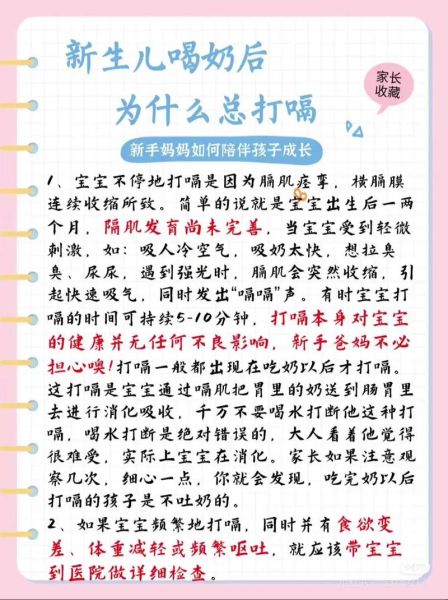 新生儿喝奶后
为什么总打嗝
家长
收藏
新手妈妈如何陪伴孩子成长
1、宝宝不停地打嗝是因为膈肌痉挛，横膈膜
连续收缩所致。简单的说就是宝宝出生后一两
个月，隔肌发育尚未完善，当宝宝受到轻微
刺激，如：吸人冷空气，吸奶太快，想拉臭
臭、尿尿，遇到强光时，膈肌会突然收缩，引
起快速吸气，同时发出“嗝嗝”声。有时宝宝打
嗝的时间可持续5-10分钟，打嗝本身对宝宝
的健康并无任何不良影响，新手爸妈不必
担心噢!打嗝一般都出现在吃奶以后才打嗝。
这打嗝是宝宝通过嗝肌把胃里的奶送到肠胃里
去进行消化吸收，千万不要喝水打断他这种打
嗝，喝水打断是绝对错误的，大人看着他觉得
很难受，实际上宝宝在消化。家长如果注意观
察几次，细心一点，你就会发现，吃完奶以后
打嗝的孩子是不吐奶的。
2、如果宝宝频繁地打嗝，同时并有食欲变
差、体重减轻或频繁呕吐，就应该带宝宝
到医院做详细检查。